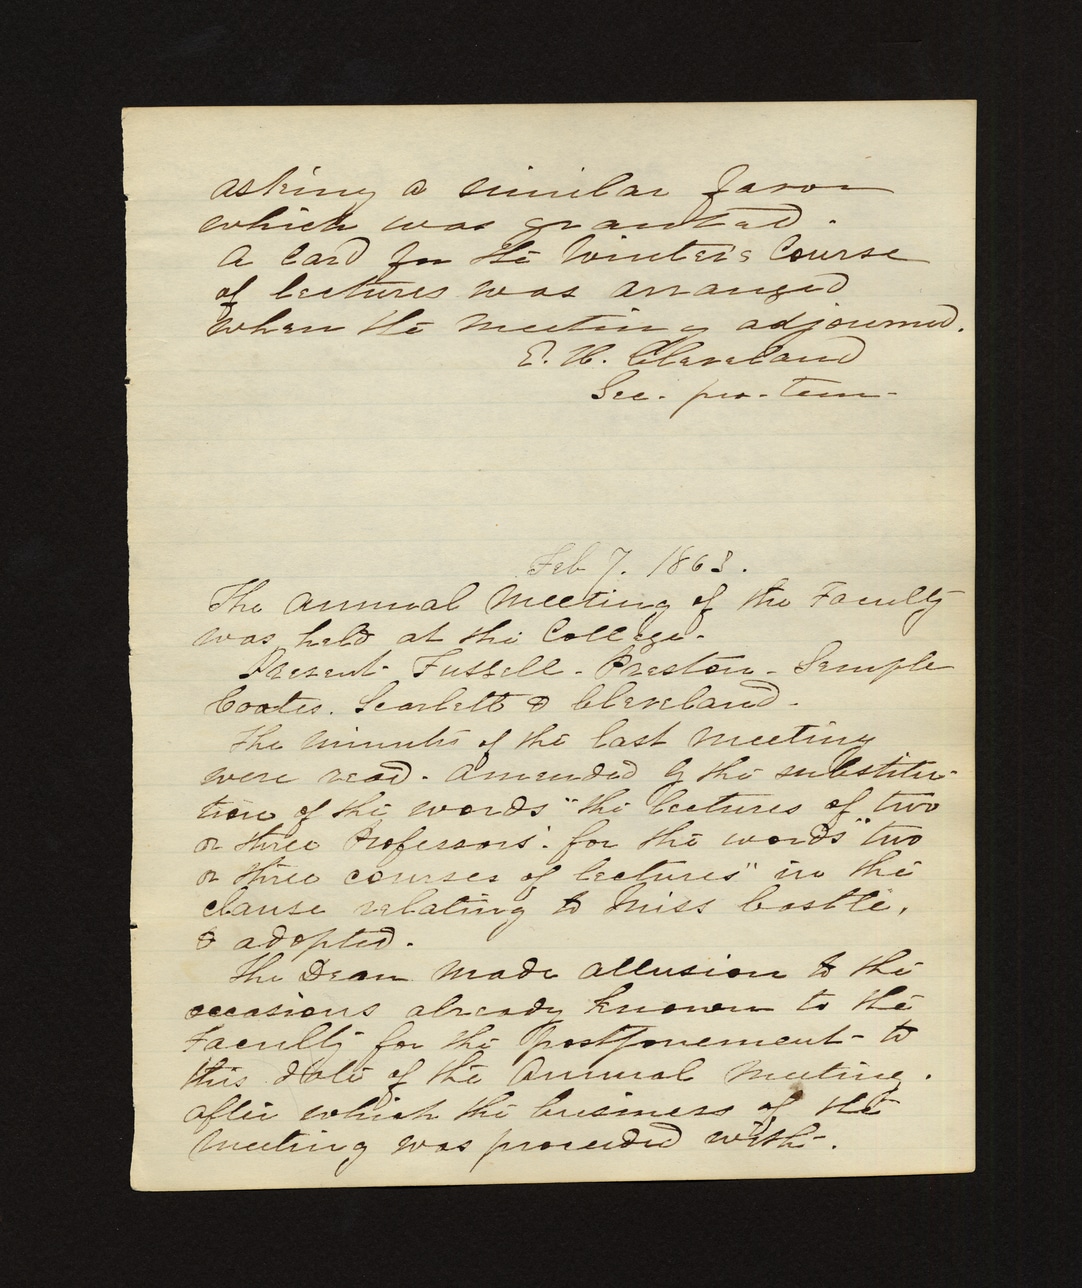 asking a similar favor
which was granted.
A Card for the Winter's Course
of lectures was arranged
when the meeting adjourned.
E. H. Cleveland
Sec. pro. tem.
Feb 7. 1863.
The Annual Meeting of the Faculty
was held at the College.
Present Fussell - Preston - Semple
Coates. Scarlett & Cleveland.
The minutes of the last meeting
were read. Amended by the substitu-
tion of the words "the lectures of two
or three Professors". for the words "two
or three courses of lectures" in the
clause relating to Miss Costle,
& adopted.
The Dean made allusion to the
occasions already known to the
Faculty for the postponement to
this date of the Annual Meeting.
after which the business of the
meeting was proceeded with.